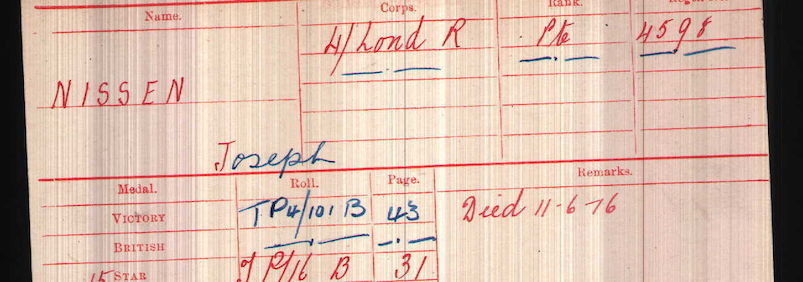 Name. Corps. Rank.
4/Lond R Pte 4598
NISSEN
Joseph
Medal. Roll. Page. Remarks.
VICTORY TP4/101 B 43 Died 11-6-16
BRITISH
15 STAR 31